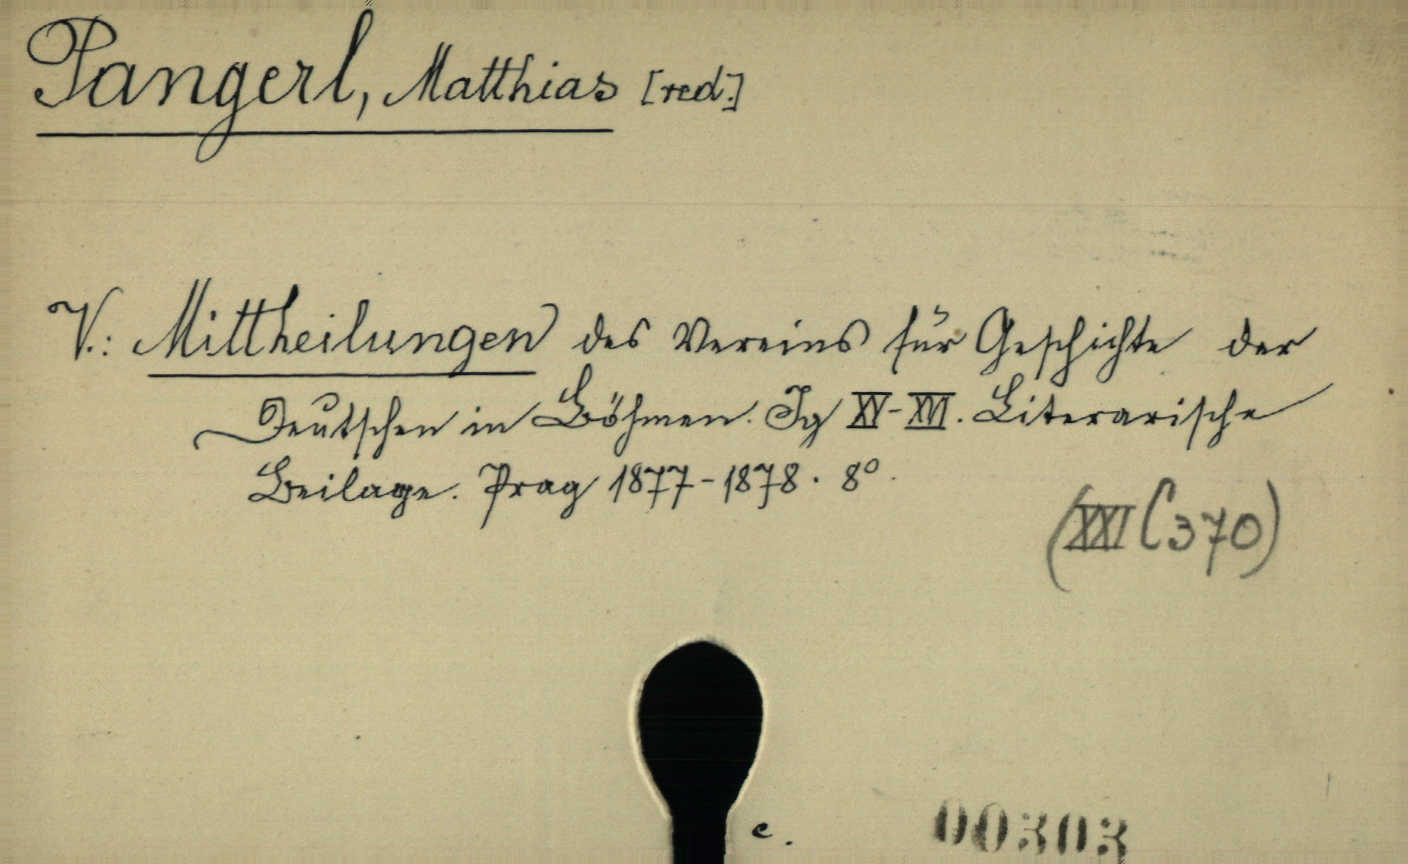 Pangerl, Matthias [red.]
V.: Mittheilungen des Vereins für Geschichte der
Deutschen in Böhmen. Jg XV-XVI. Literarische
Beilage. Prag 1877-1878. 8°.
(XXI C 370)
c.
00303